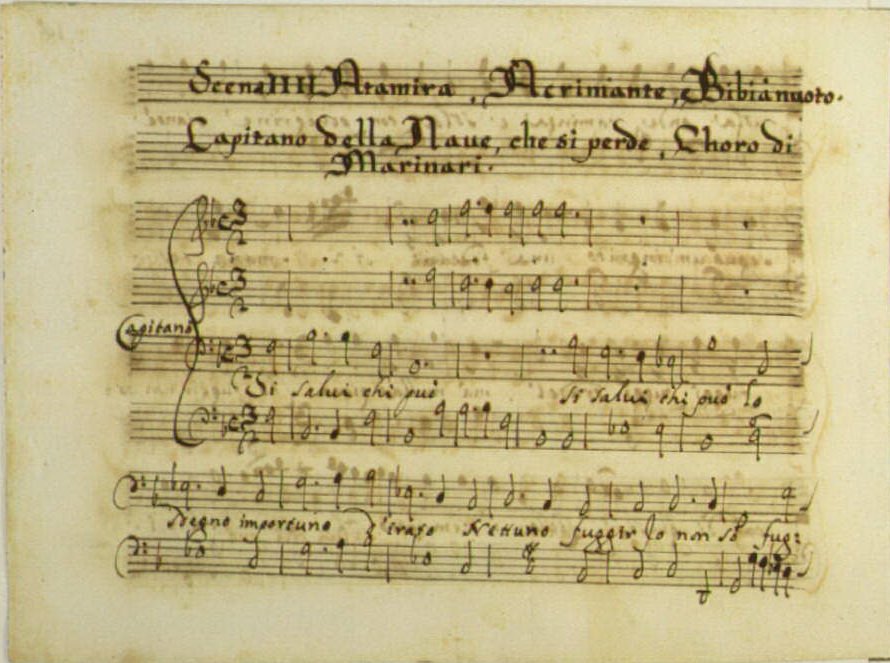 Scena IIII Atamira, Acrimante, e Bibi à nuoto.
Capitano della Naue, che si perde, Choro di
Marinari.
Capitano
Si salui chi può si salui chi può lo
sdegno importuno d'irato Nettuno fuggir lo non sò fug: